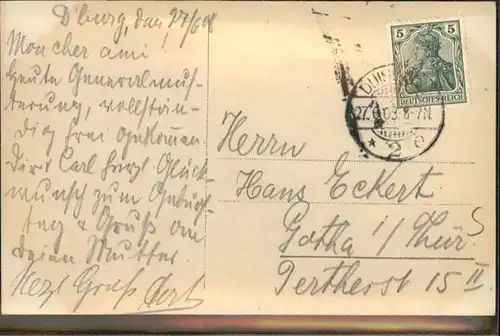 D'burg, den 27/6 08
Mon cher ami!
Heute Generalmus-
terung, vollstän-
dig frei gekommen.
Dir Carl herzl. Glück-
wunsch zum Geburts-
tag & Gruß an
deine Mutter.
Herzl. Gruß
5 5
DEUTSCHES REICH
DUIS
27.6.08. 8-7N.
* 2 e
Herrn
Hans Eckert
Gotha i/Thür
Perthesst 15 II